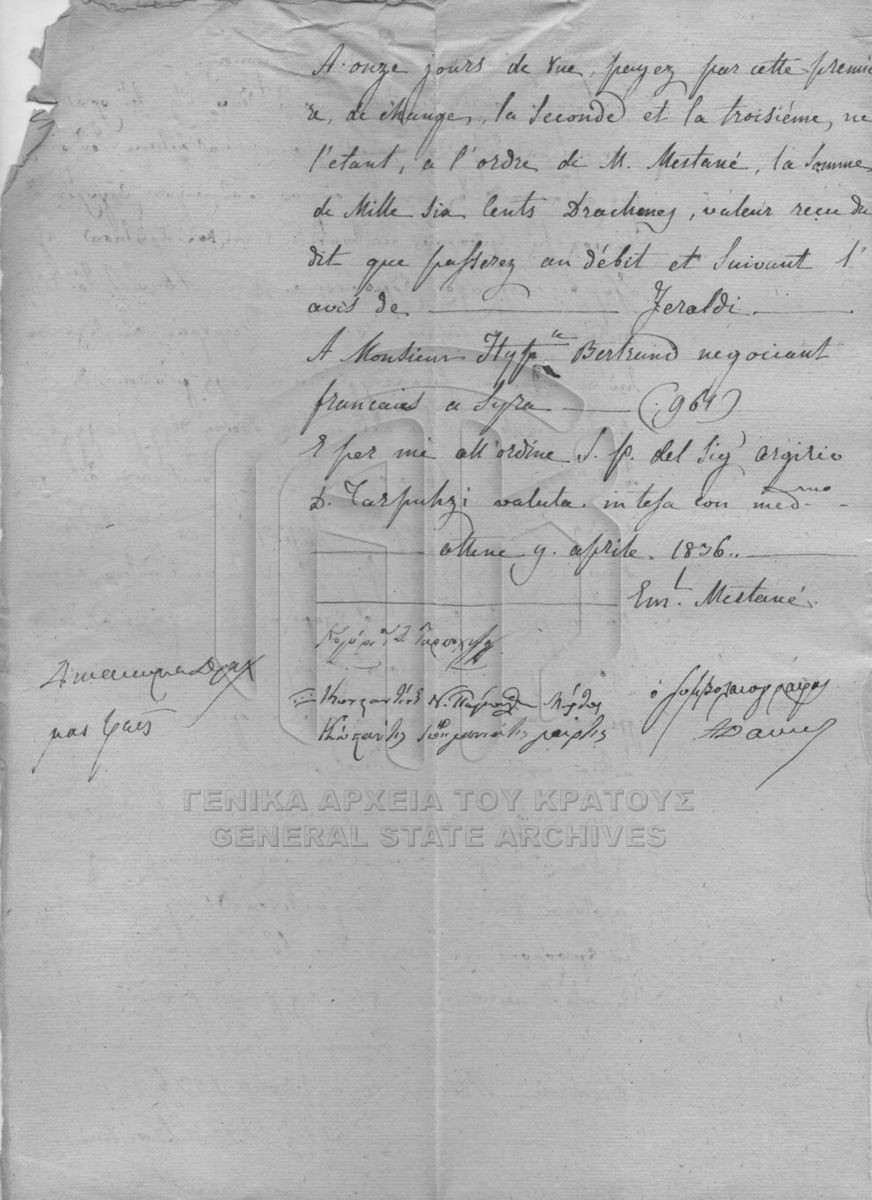 A onze jours de vue, payez par cette premie
re, de change, la Seconde et la troisiéme, ne
l'étant, a l'ordre de M. Mestané, la Somme
de Mille Six Cents Drachmes, valeur recu du
dit que passerez au débit et Suivant l'
avis de Feraldi.
A Monsieur Hyp.te Bertrand negociant
francais a Syra (961)
E per me all'ordine S. p. del Sig.r argirio
D. Tarpuhzi valuta intesa con med.mo
attene 9. aprile. 1836..
Em.l Mestané.
Δικαιωμα Δραχ
μας τρεῖς
ὁ συμβολαιογράφος